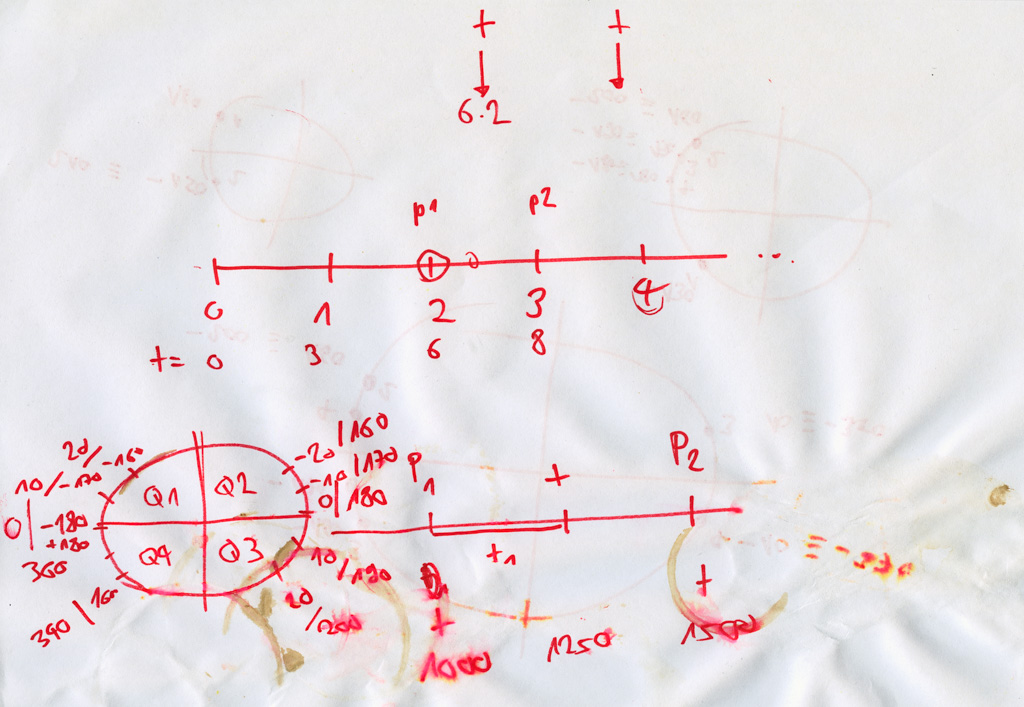 + +
6.2
p1 p2
...
0 1 2 3 4
t= 0 3 6 8
20/-160
10/-170
0/-180
+180
360
340/160
Q1 Q2
Q4 Q3
-20/160
-10/170
0/180
10/190
20/200
P1 t P2
t1
t t
1000 1250 1500